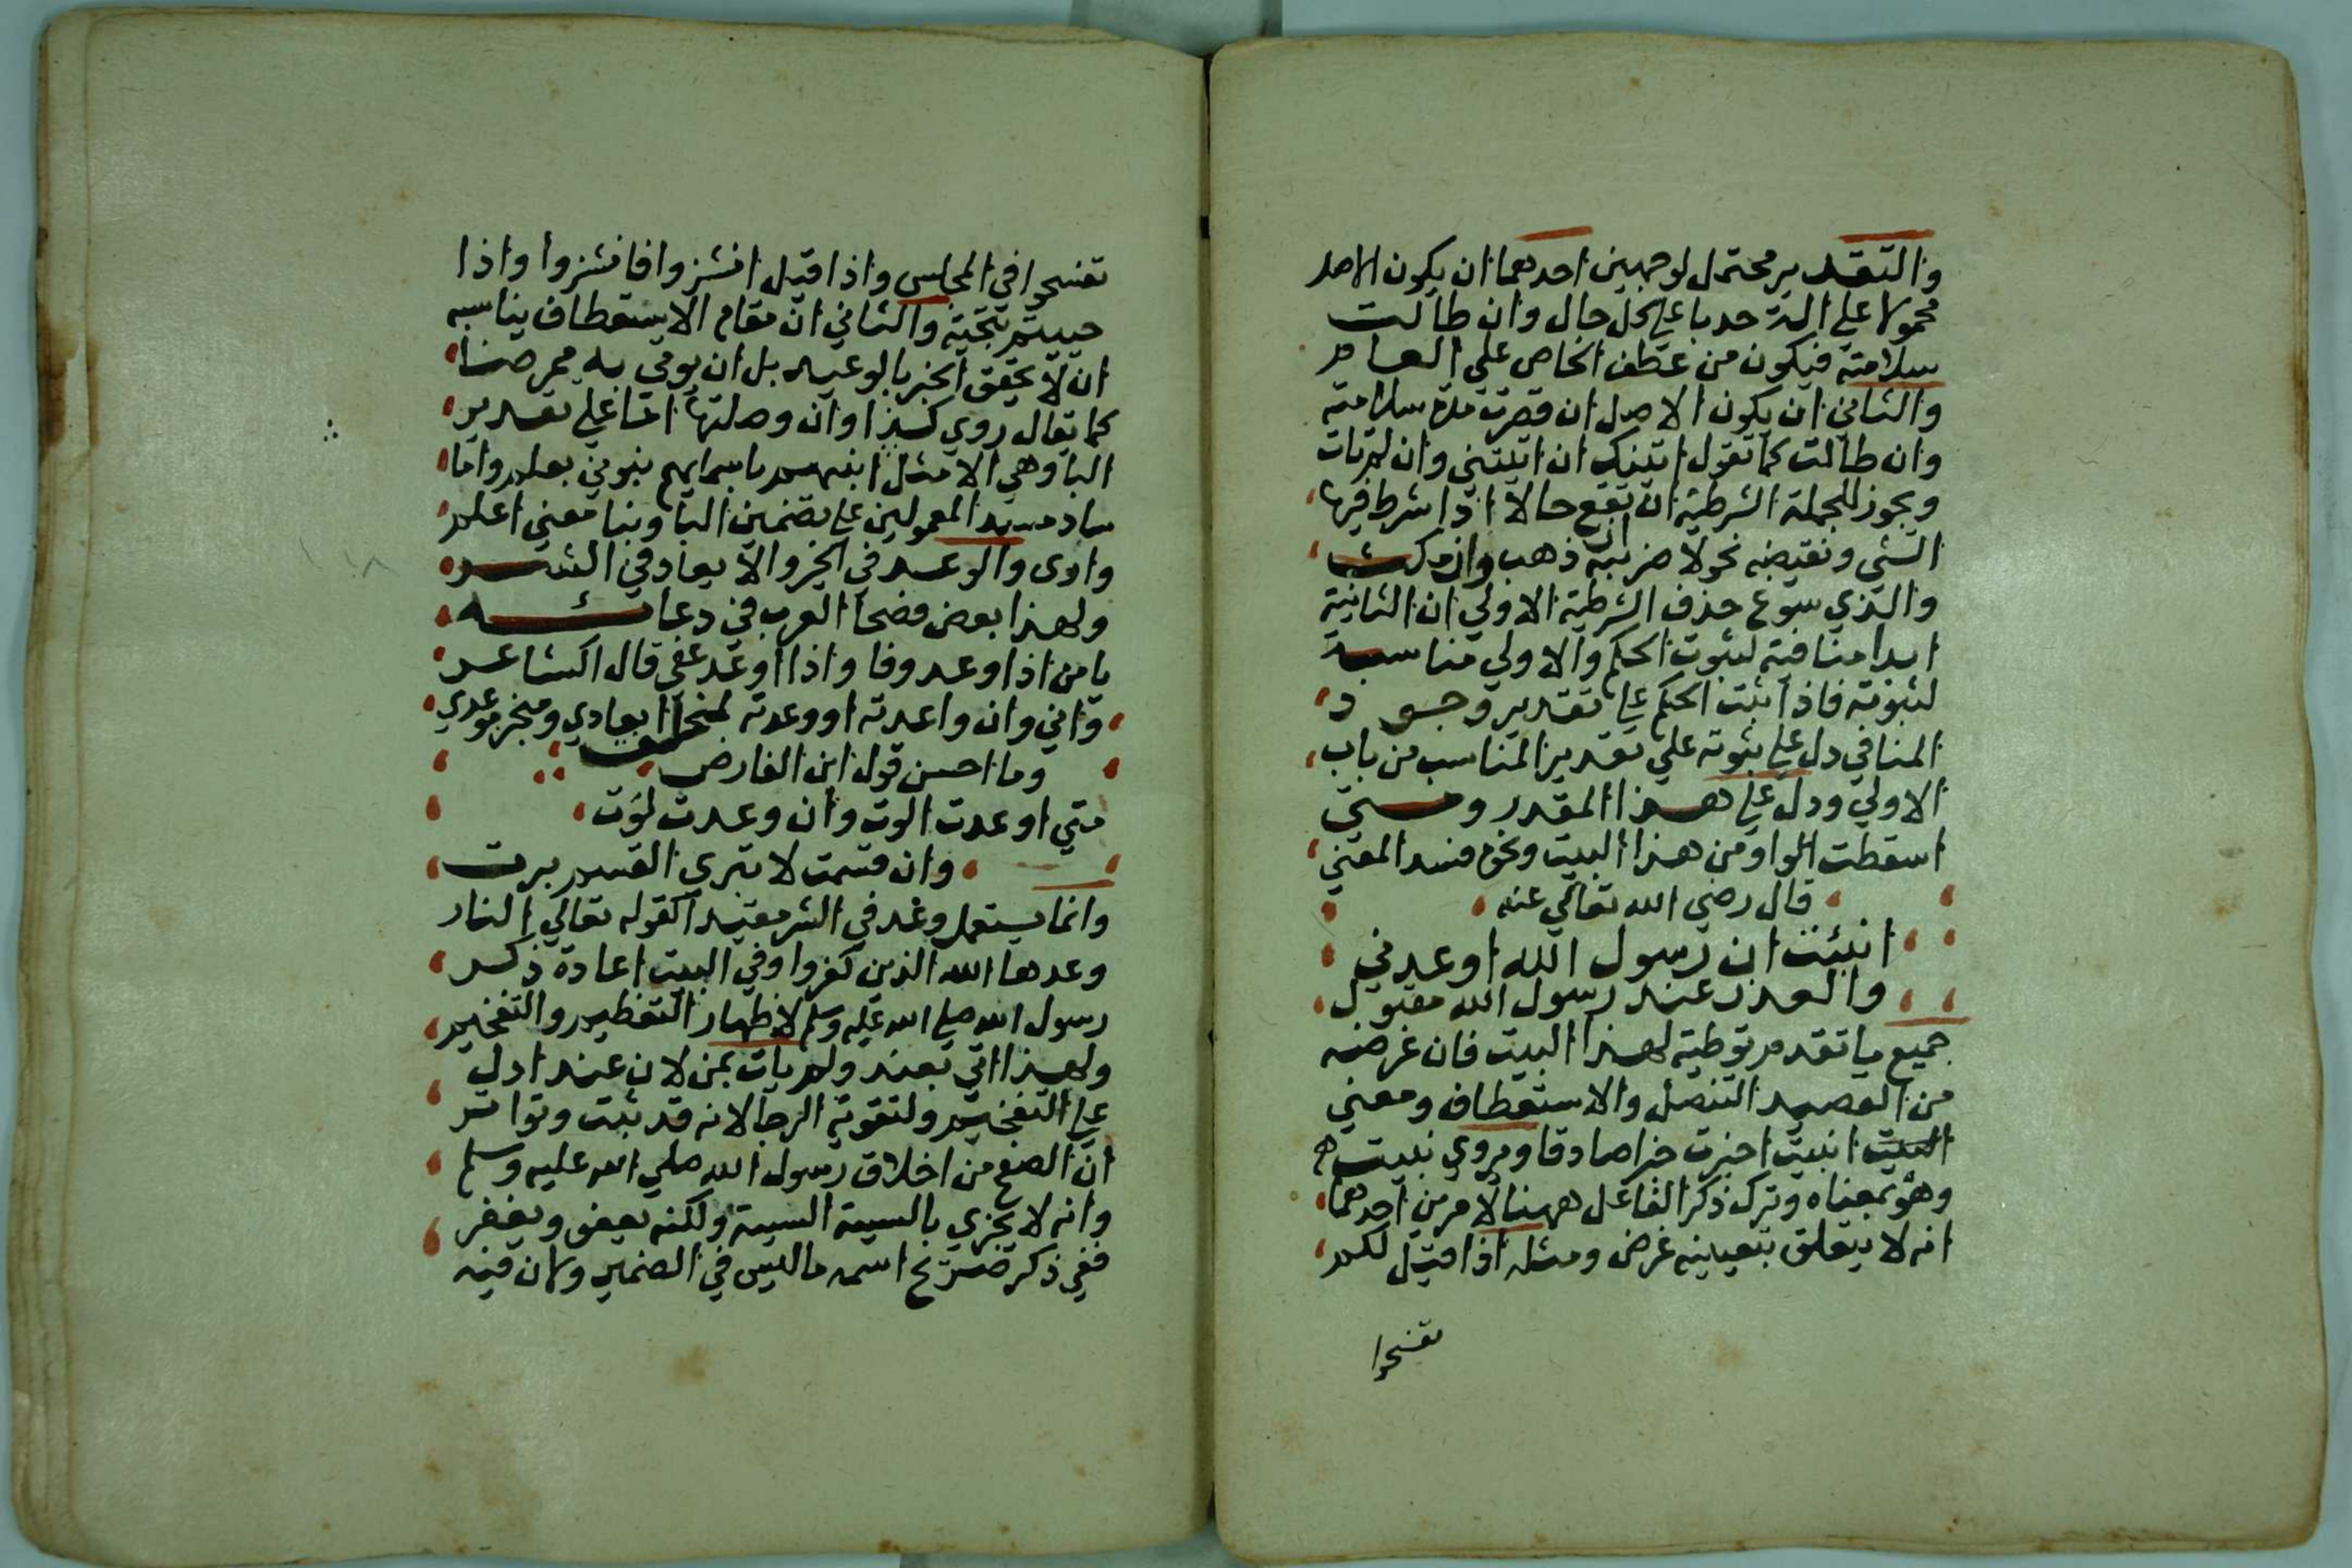 والتقدير محتمل لوجهين احدهما ان يكون الاصل
محمولا على الة حدبا على كل حال وان طالت
سلامته فيكون من عطف الخاص على العام
والثاني ان يكون الاصل ان قصرت مدة سلامته
وان طالت كما تقول اتيتك ان اتيتني وان لم تات
ويجوز للجملة الشرطية ان تقع حالا اذا شرط فيها
الشي ونقيضه نحو لاضربنه ان ذهب وان مكث
والذي سوغ حذف الشرطية الاولي ان الثانية
ابدا منافية لثبوت الحكم والاولي مناسبة
لثبوته فاذا ثبت الحكم على تقدير وجود
المنافي دل على ثبوته علي تقدير المناسب من باب
الاولي ودل على هذا المقدر ومتي
اسقطت الواو من هذا البيت ونحوه فسد المعني
قال رضي الله تعالي عنه
انبئت ان رسول الله اوعدني
والعذر عند رسول الله مقبول
جميع ما تقدم توطية لهذا البيت فان غرضه
من القصيد التنصل والاستعطاف ومعني
البيت انبيت اخبرت خبرا صادقا ويروي نبيت
وهو بمعناه وترك ذكر الفاعل ههنا لامرين احدهما
انه لا يتعلق بتعيينه غرض ومثله اذا قيل لكم
تفسحوا
تفسحوا في المجلس واذا قيل انشزوا فانشزوا واذا
حييتم بتحية والثاني ان مقام الاستعطاف يناسبه
ان لا يحقق الخبر بالوعيد بل ان يومي به ممرضا
كما يقال روي كذا وان وصلتها اما على تقدير
البا وهي الامثل انبهم باسمايهم نبوني بعلم واما
ساد مسد المعمولين على تضمين انبا ونبا معني اعلم
واري والوعد في الخير والايعاد في الشر
ولهذا بعض فصحا العرب في دعائه
يا من اذا وعد وفا واذا اوعد عفي قال الشاعر
واني وان واعدته او وعدته لمخلف ايعادي ومنجز موعدي
وما احسن قول ابن الفارض
متي اوعدت الوت وان وعدت لوت
وان قسمت لا تبري القسم برت
وانما يستعمل وعد في الشر مقيدا كقوله تعالي النار
وعدها الله الذين كفروا وفي البيت اعادة ذكر
رسول الله صلى الله عليه وسلم لاظهار التعظيم والتفخيم
ولهذا اتي بعند ولم يات بمن لان عند ادل
على التفخيم ولتقوية الرجا لانه قد ثبت وتواتر
ان الصفح من اخلاق رسول الله صلي الله عليه وسلم
وانه لا يجزي بالسيية السيية ولكنه يعفو ويغفر
ففي ذكر صريح اسمه ما ليس في الضمير ولان فيه